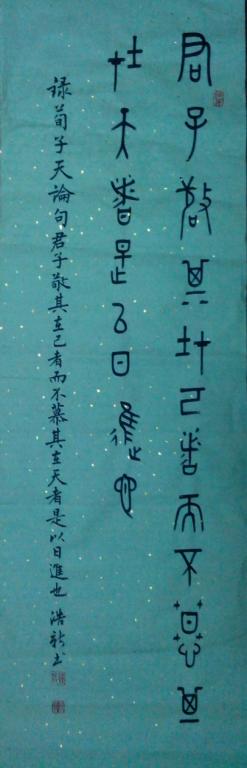 君子敬其在己者而不慕其
在天者是以日進也
録荀子天論句君子敬其在己者而不慕其在天者是以日進也 浩新书